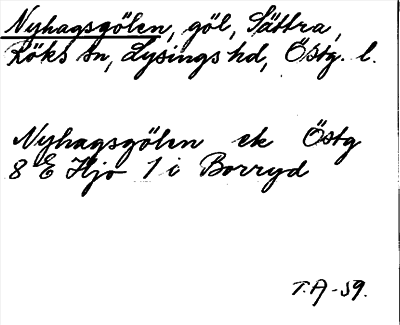 Nyhagsgölen, göl, Sättra,
Röks sn, Lysings hd, Östg. l.
Nyhagsgölen ek Östg
8 E Hjo 1 i Borryd
T.A -59.